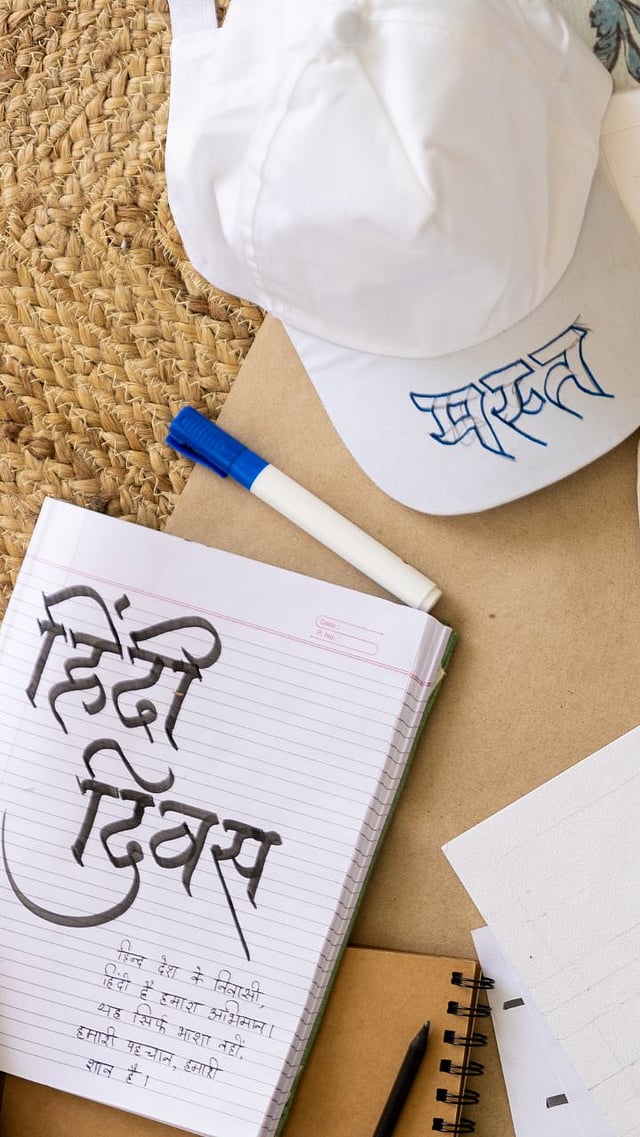 मस्त
Date:
P. No.:
हिंदी
दिवस
हिन्द देश के निवासी,
हिंदी है हमारा अभिमान।
यह सिर्फ भाशा नहीं,
हमारी पहचान, हमारी
शान है।